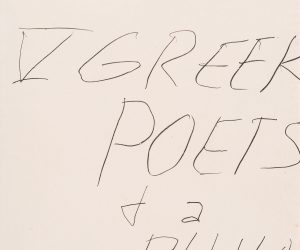 V GREEK
POETS
& a